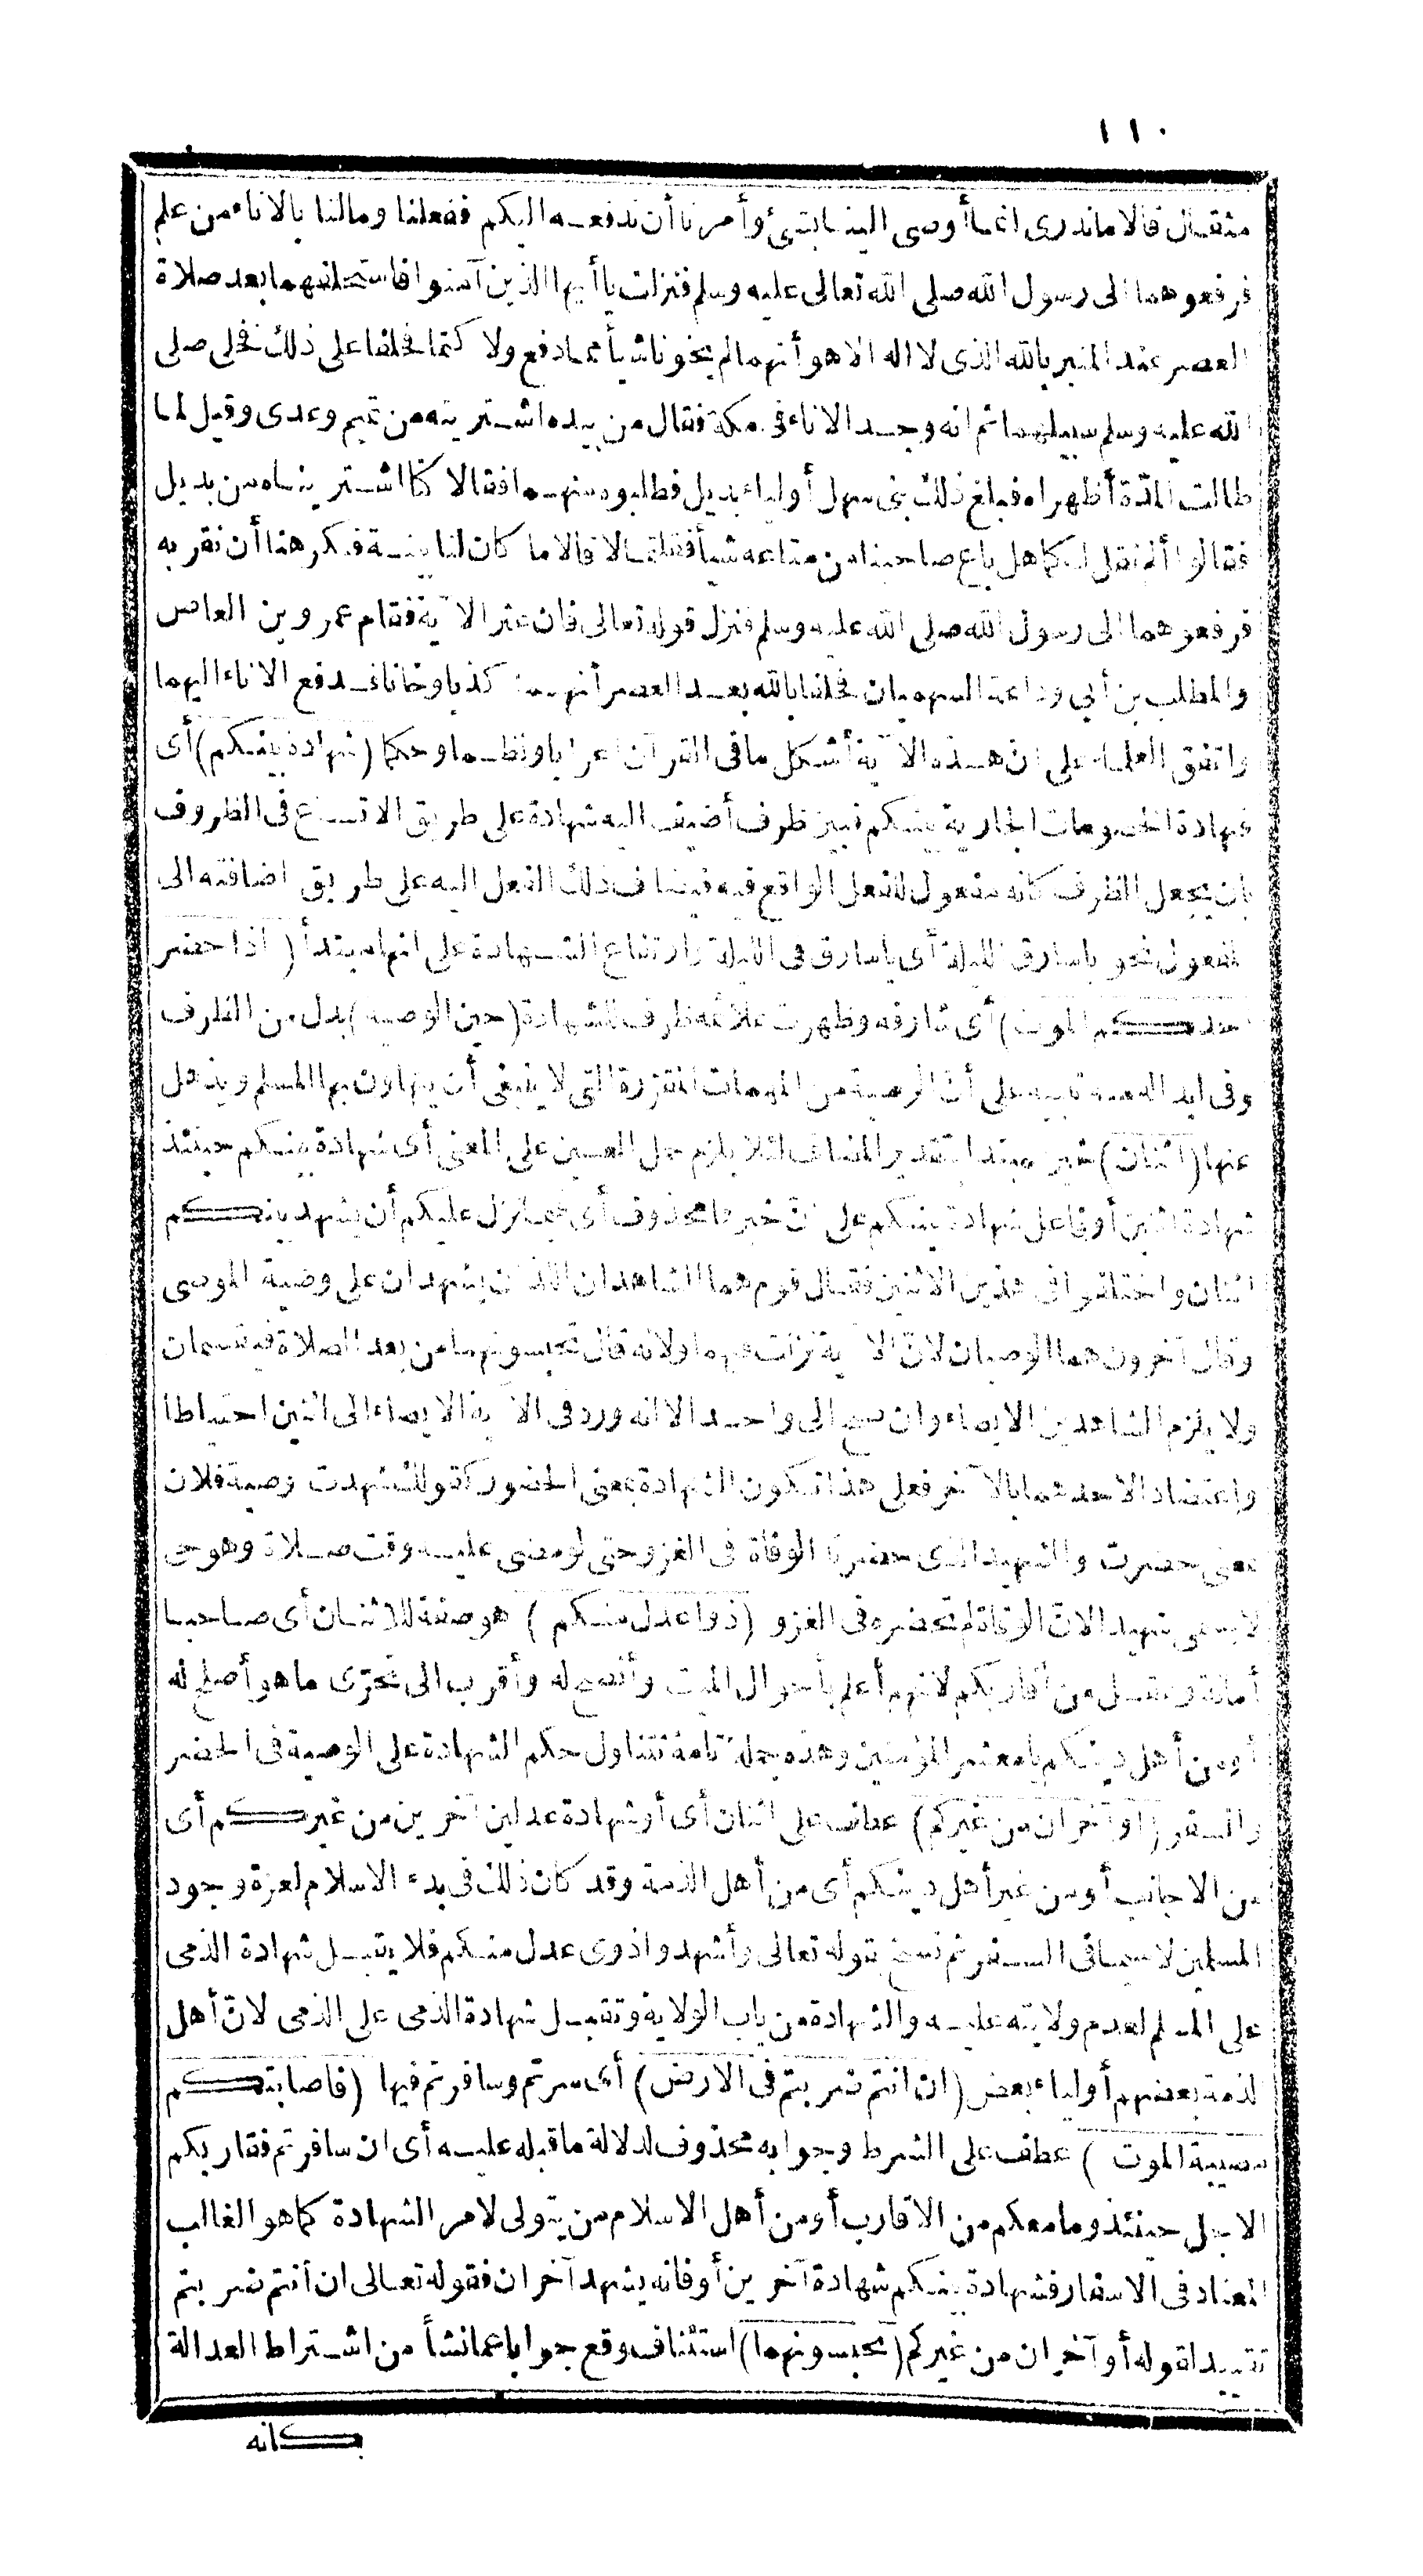 ١١٠
مثقال فالا ماندرى انما أوصى الينا بشئ وأمرنا أن ندفعه اليكم ففعلنا ومالنا بالاناء من علم
فرفعوهما الى رسول الله صلى الله تعالى عليه وسلم فنزلت ياأيها الذين آمنوا فاستحلفهما بعد صلاة
العصر عند المنبر بالله الذى لا اله الا هو أنهما لم يخونا شيأ مما دفع ولا كتما فحلفا على ذلك فخلى صلى
الله عليه وسلم سبيلهما ثم انه وجد الاناء فى مكة فقال من بيده اشتريته من تميم وعدى وقيل لما
طالت المدّة أظهراه فبلغ ذلك بنى سهل أولياء بديل فطلبوه منهما فقالا كنا اشتريناه من بديل
فقالوا ألم نقل لكما هل باع صاحبنا من متاعه شيأ فقلتما لا قالا ما كان لنا بينة فكرهنا أن نقر به
فرفعوهما الى رسول الله صلى الله عليه وسلم فنزل قوله تعالى فان عثر الآية فقام عمرو بن العاص
والمطلب بن أبى وداعة السهميان فحلفا بالله بعد العصر أنهما كذبا وخانا فدفع الاناء اليهما
واتفق العلماء على ان هذه الآية أشكل ما فى القرآن اعرابا ونظما وحكما (شهادة بينكم) أى
شهادة الخصومات الجارية بينكم فبين ظرف أضيف اليه شهادة على طريق الاتساع فى الظروف
بان يجعل الظرف كانه مفعول للفعل الواقع فيه فيضاف ذلك الفعل اليه على طريق اضافته الى
المفعول نحو ياسارق الليلة أى ياسارق فى الليلة وارتفاع الشهادة على انها مبتدأ (اذا حضر
أحدكم الموت) أى شارفه وظهرت علائمه ظرف للشهادة (حين الوصية) بدل من الظرف
وفى ابداله منه تنبيه على أنّ الوصية من المهمات المقرّرة التى لا ينبغى أن يتهاون بها المسلم ويذهل
عنها (اثنان) خبر مبتدا بتقدير المضاف لئلا يلزم حمل العين على المعنى أى شهادة بينكم حينئذ
شهادة اثنين أو فاعل شهادة بينكم على انّ خبرها محذوف أى فيما نزل عليكم أن يشهد بينكم
اثنان واختلفوا فى هذين الاثنين فقال قوم هما الشاهدان اللذان يشهدان على وصية الموصى
وقال آخرون هما الوصيان لانّ الآية نزلت فيهما ولانه قال تحبسونهما من بعد الصلاة فيقسمان
ولا يلزم الشاهدين الايصاء وان صح الى واحد الا انه ورد فى الآية الايصاء الى اثنين احتياطا
واعتضاد الاحدهما بالآخر فعلى هذا تكون الشهادة بمعنى الحضور كقولك شهدت وصية فلان
بمعنى حضرت والشهيد الذى حضرته الوفاة فى الغزو حتى لو مضى عليه وقت صلاة وهو حى
لا يسمى شهيدا لانّ الوفاة لم تحضره فى الغزو (ذوا عدل منكم) هو صفة للاثنان أى صاحبا
أمانة وعقل من أقاربكم لانهم أعلم بأحوال الميت وأنصح له وأقرب الى تحرّى ما هو أصلح له
أو من أهل دينكم يا معشر المؤمنين وهذه جملة تامة تتناول حكم الشهادة على الوصية فى الحضر
والسفر (أو آخران من غيركم) عطف على اثنان أى أو شهادة عدلين آخرين من غيركم أى
من الاجانب أو من غير أهل دينكم أى من أهل الذمة وقد كان ذلك فى بدء الاسلام لعزة وجود
المسلمين لا سيما فى السفر ثم نسخ بقوله تعالى وأشهدوا ذوى عدل منكم فلا يقبل شهادة الذمى
على المسلم لعدم ولايته عليه والشهادة من باب الولاية وتقبل شهادة الذمى على الذمى لانّ أهل
الذمة بعضهم أولياء بعض (ان انتم ضربتم فى الارض) أى سرتم وسافرتم فيها (فاصابتكم
مصيبة الموت) عطف على الشرط وجوابه محذوف لدلالة ما قبله عليه أى ان سافرتم فقاربكم
الاجل حينئذ وما معكم من الاقارب أو من أهل الاسلام من يتولى لامر الشهادة كما هو الغالب
المعتاد فى الاسفار فشهادة بينكم شهادة آخرين أو فانه يشهد آخران فقوله تعالى ان أنتم ضربتم
تقييد لقوله أو آخران من غيركم (تحبسونهما) استئناف وقع جوابا عما نشأ من اشتراط العدالة
كانه